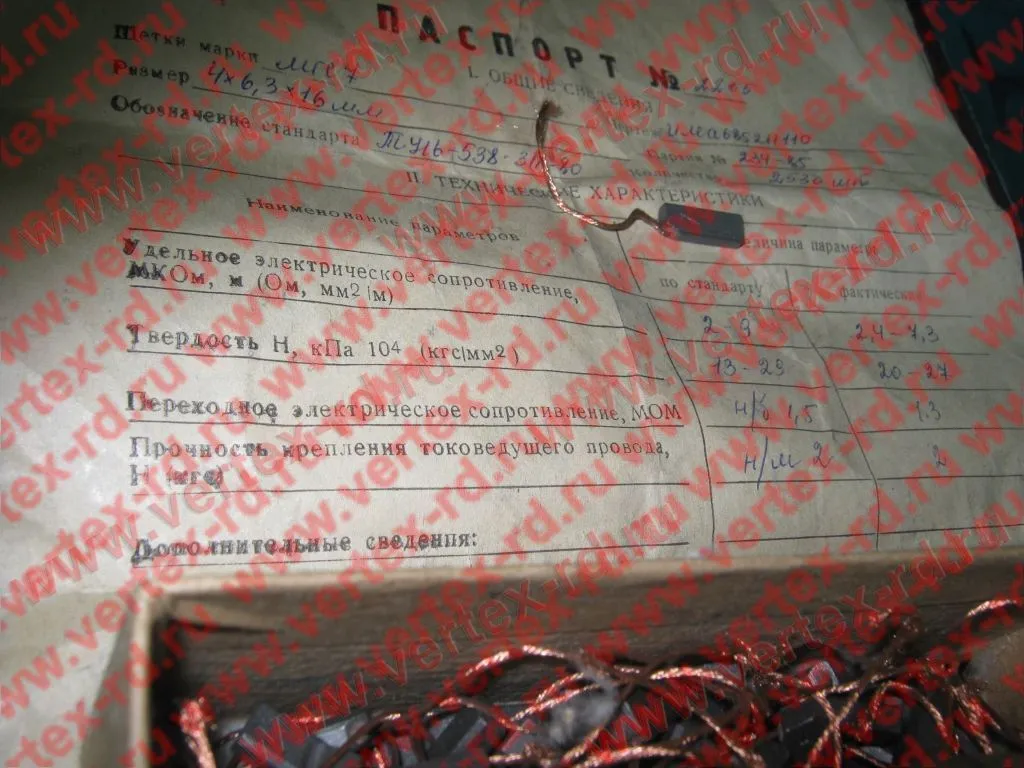 ПАСПОРТ № 2206
I. ОБЩИЕ СВЕДЕНИЯ
Щетки марки МГС7
Чертеж ИМА685211110
Размер 4×6,3×16 мм
Партия № 234-85
Обозначение стандарта ТУ16-538. 80
Количество 2530 шт
II. ТЕХНИЧЕСКИЕ ХАРАКТЕРИСТИКИ
Наименование параметров
еличина параметр
по стандарту
фактическ
Удельное электрическое сопротивление,
МКОм, м (Ом, мм2 |м)
2-9
2,4-7,3
Твердость Н, кПа 104 (кгс|мм2)
13-29
20-27
Переходное электрическое сопротивление, МОМ
н/б 1,5
1.3
Прочность крепления токоведущего провода,
Н (кгс)
н/м 2
2
Дополнительные сведения:
www.vertex-rd.ru